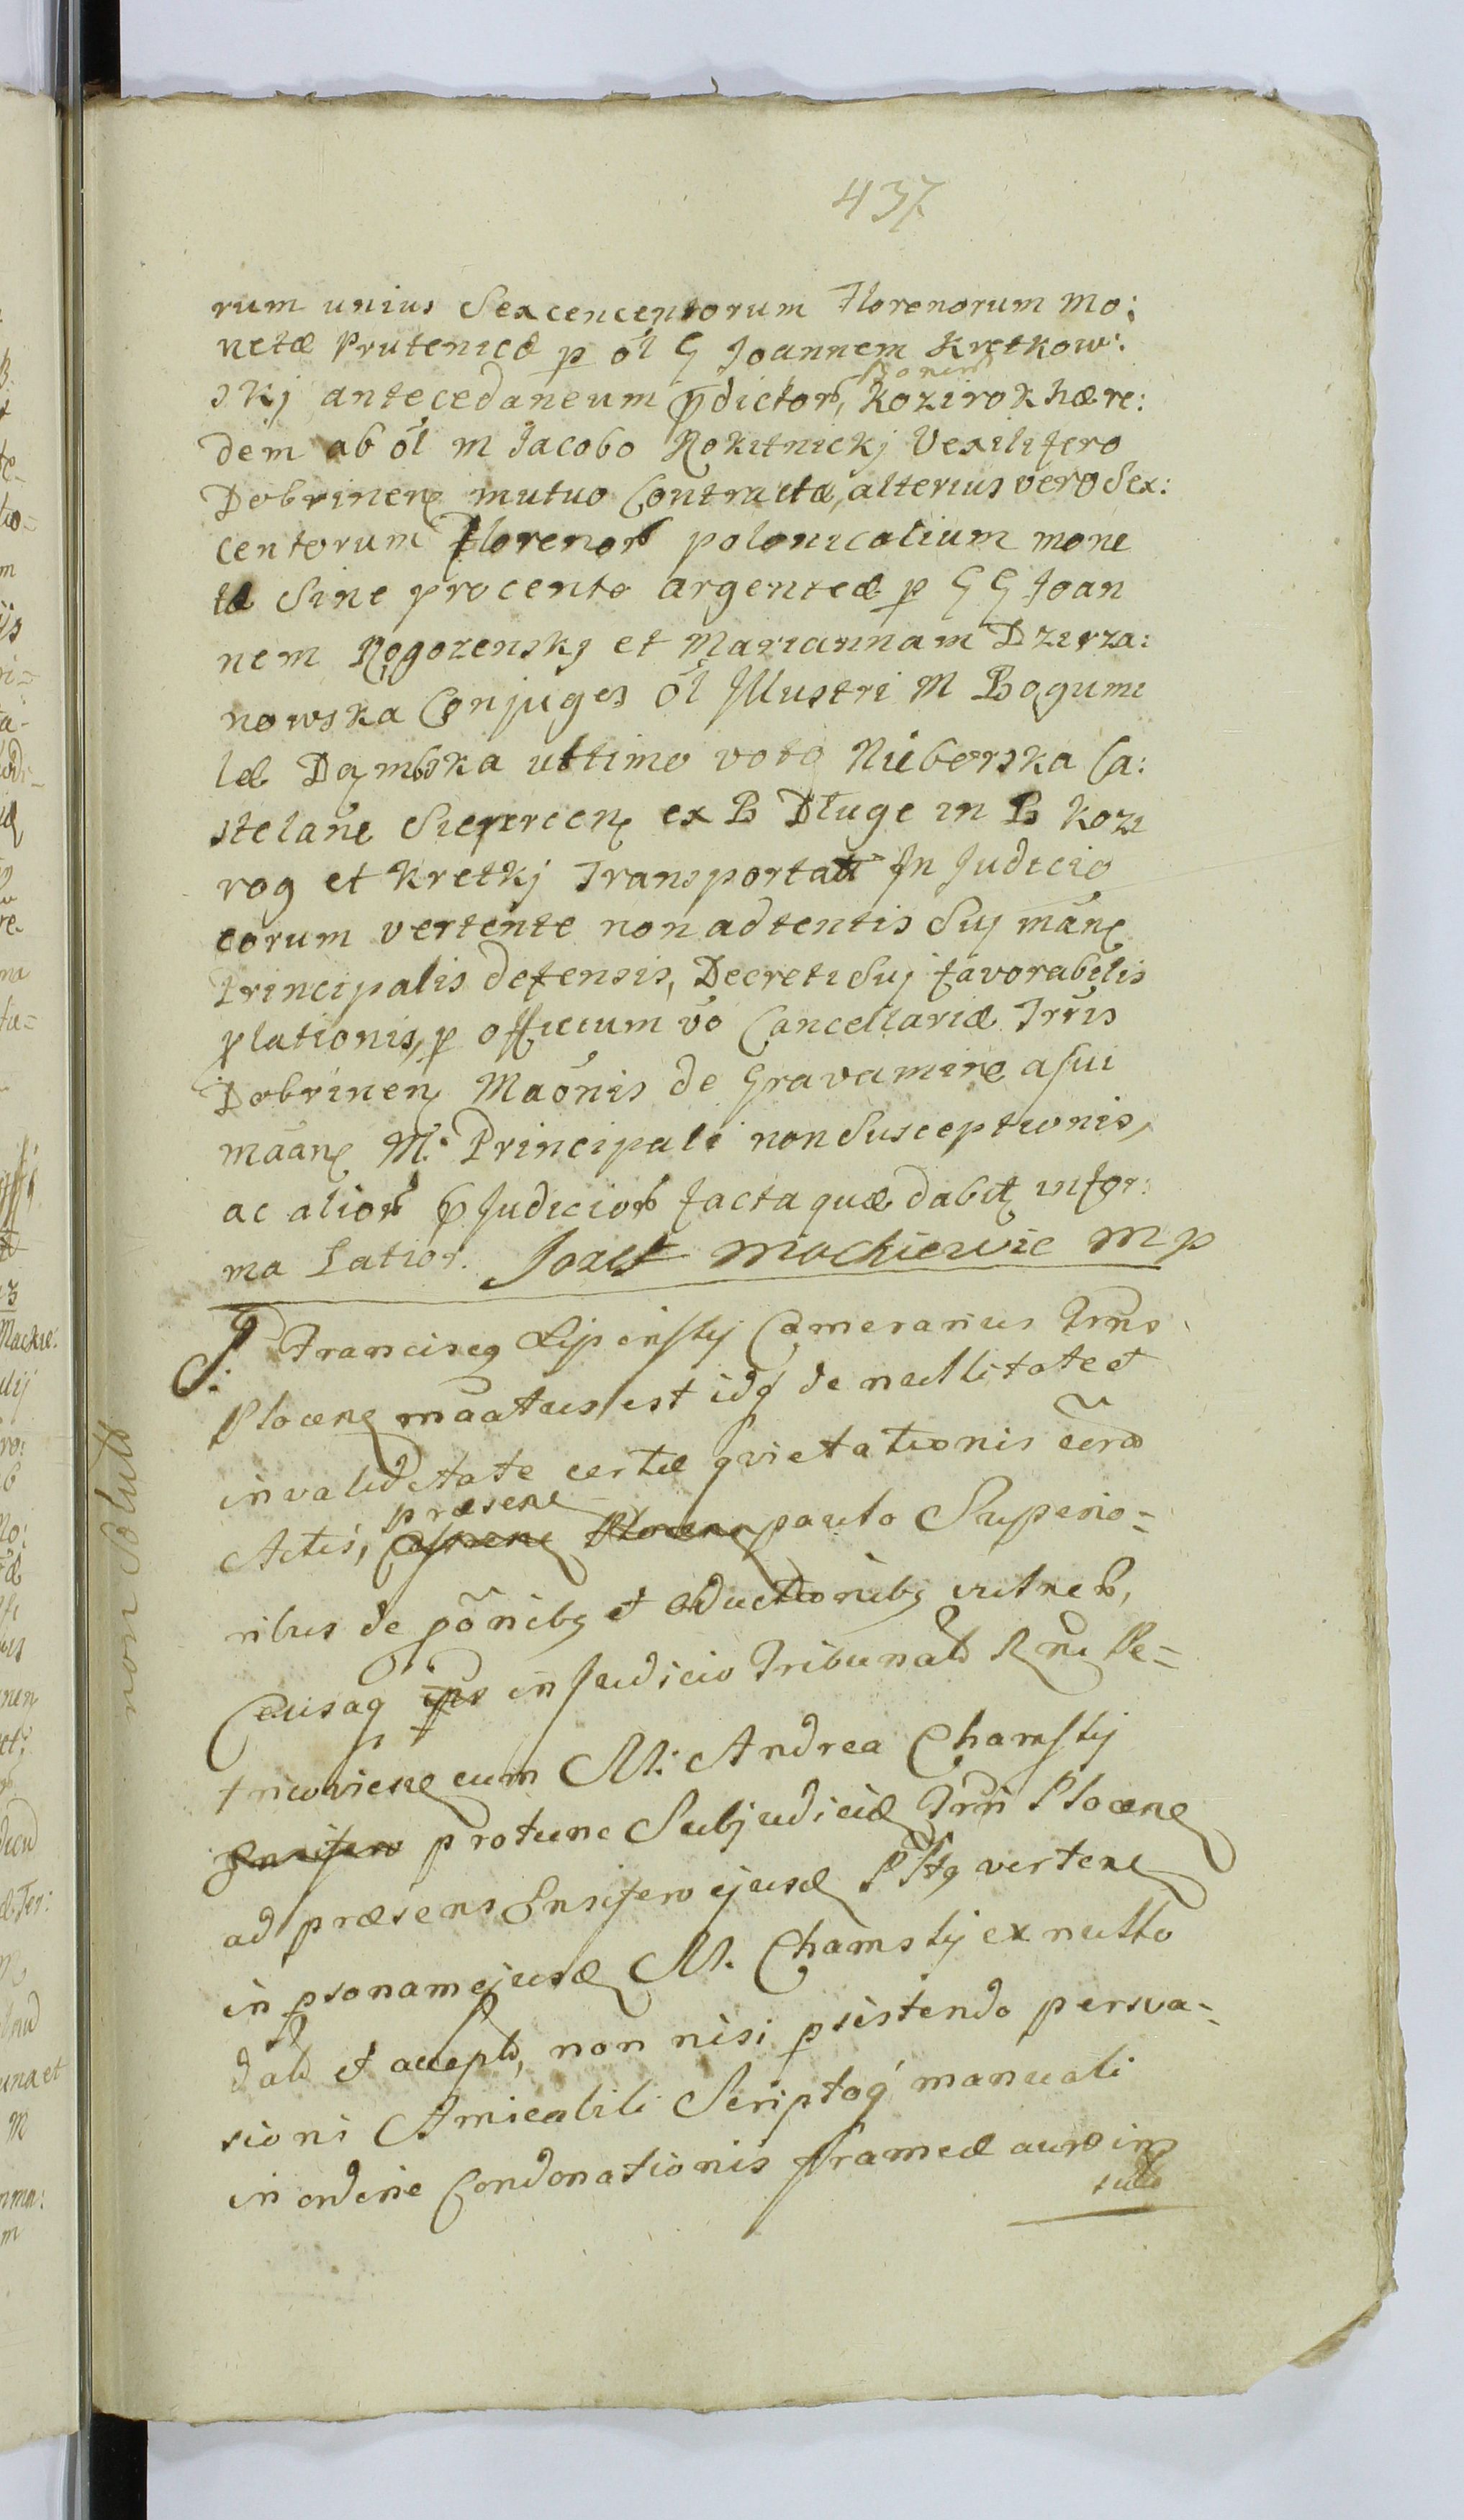 437
rum unius Sexcencentorum Florenorum Mo:
netæ Prutenicæ p ól G Joannem Kretkow:
skj antecedaneum p̄dictorб, Bonorб Kozirok hære:
dem ab ól M Jacobo Rokitnickj Vexilifero
Dobrinenς mutuo Contracta, alterius vero Sex:
centorum Florenorб polonicalium mone
tæ Sine procento argenteæ p G G Joan
nem Rogozenskj et Mariannam Dzierza:
nowska Conjuges ól Illustri M Bogumi
læ Dąmbska ultimo voto Niiborska Ca:
stelane Sieprcenς ex B Długe in B Kozi
rog et Kretkj Transportatæ In Judicio
eorum vertente non adtentis Suj mãnς
Principalis defensis, Decreti Suj favorabilis
plationis, p officium vo Cancellariæ Trr̃is
Dobrinenς Maõnis de Gravamine a sui
maãnς M. Principali non Susceptionis,
ac aliorб p Judiciorб facta quæ dabit infor:
ma Latior. Mackiewic mp
J. Franciscq Lipinskj Camerarius Trr̃is
Plocenς mãatus est idq de nullitate et
invaliditate certæ quietationis
Actis, præsenς Plocenς paulo Superio=
ribus de põnibq et
Causaq in Judicio Tribunals Rni Pe=
tricovienς cum M. Andrea Chamskj
Ensifero protunc Subjudice Trr̃ Plocenς
ad præsens Ensifero ejusd vertenς
in psonam ejusd M. Chamskj ex nullo
dato et accepto, non nisi psistendo persva=
sioni Amicabili Scriptoq manuali
in ordine Condonationis frameæ
non solut